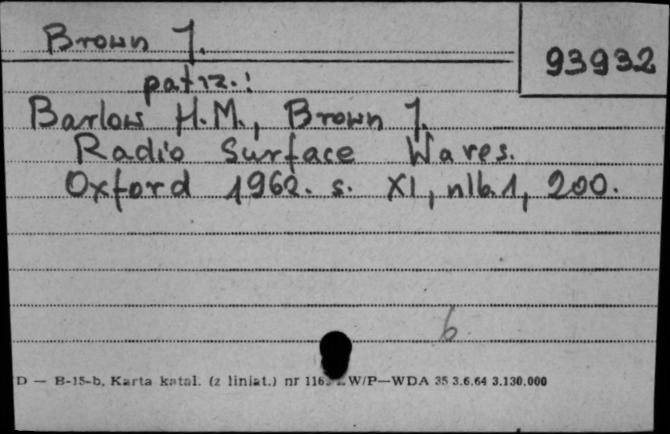 Brown J.
93932
patrz.:
Barlow H.M., Brown J.
Radio Surface Waves.
Oxford 1962. s. XI, nlb.1, 200.
6
D — B-15-b, Karta katal. (z liniat.) nr W/P—WDA 35 3.6.64 3.130.000